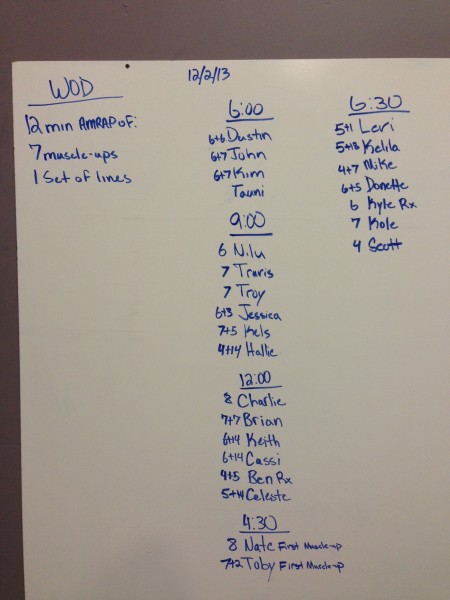 WOD
12 min AMRAP OF:
7 muscle-ups
1 Set of lines
12/2/13
6:00
6+6 Dustin
6+7 John
6+7 Kim
Tauni
9:00
6 Nilu
7 Travis
7 Troy
6+3 Jessica
7+5 Kels
4+14 Hallie
12:00
8 Charlie
7+7 Brian
6+4 Keith
6+14 Cassi
4+5 Ben Rx
5+14 Celeste
4:30
8 Nate First Muscle-up
Toby First Muscle-up
6:30
5+1 Levi
Kelila
4+7 Mike
6+5 Donette
6 Kyle Rx
7 Kole
4 Scott